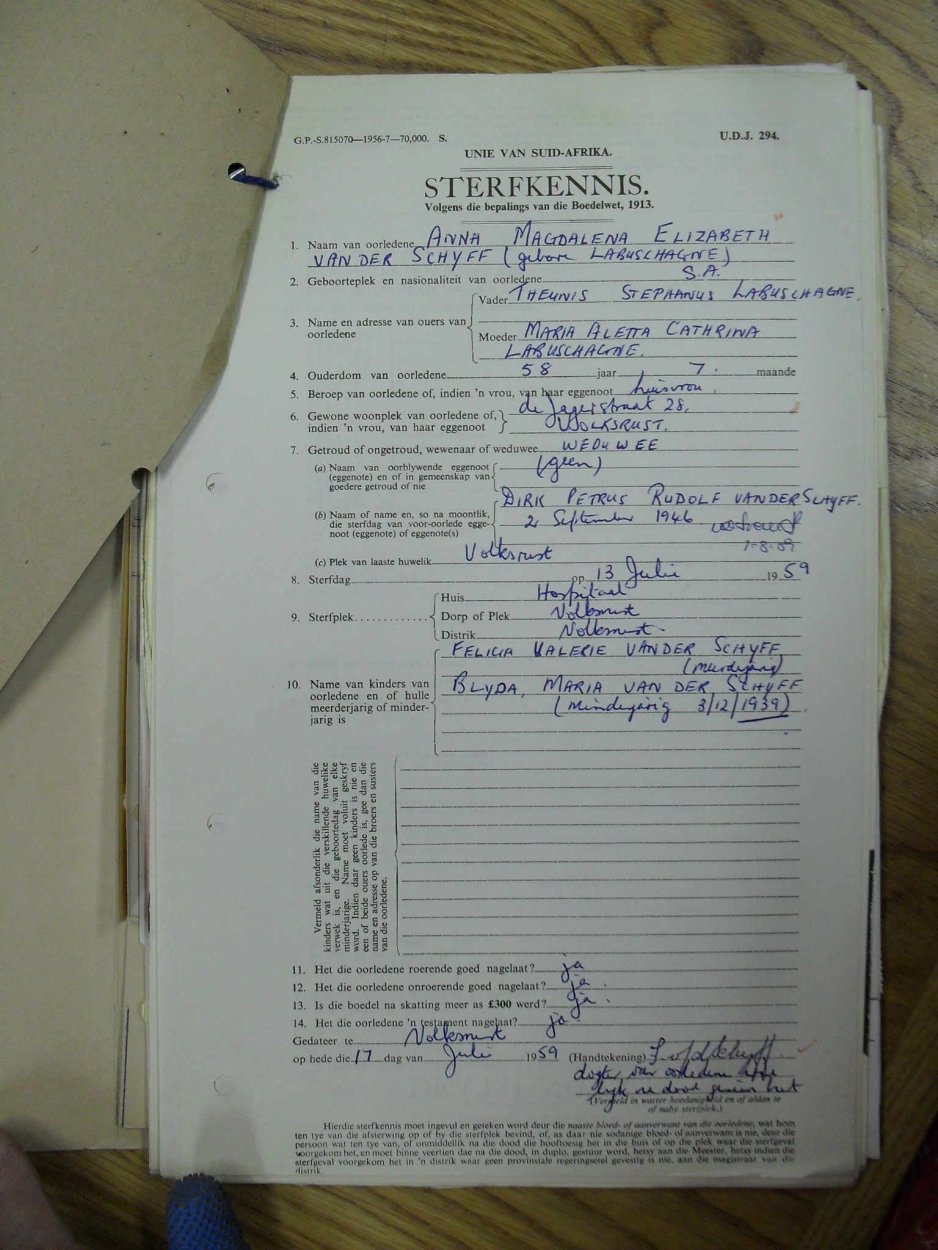 G.P.-S.815070—1956-7—70,000. S. U.D.J. 294.
UNIE VAN SUID-AFRIKA.
STERFKENNIS.
Volgens die bepalings van die Boedelwet, 1913.
1. Naam van oorledene ANNA MAGDALENA ELIZABETH
VAN DER SCHYFF (gebore LABUSCHAGNE)
2. Geboorteplek en nasionaliteit van oorledene S.A.
3. Name en adresse van ouers van oorledene
Vader THEUNIS STEPHANUS LABUSCHAGNE.
Moeder MARIA ALETTA CATHRINA
LABUSCHAGNE.
4. Ouderdom van oorledene 58 jaar 7. maande
5. Beroep van oorledene of, indien 'n vrou, van haar eggenoot huisvrou.
6. Gewone woonplek van oorledene of, de Jagerstraat 28,
indien 'n vrou, van haar eggenoot VOLKSRUST.
7. Getroud of ongetroud, wewenaar of weduwee WEDUWEE
(a) Naam van oorblywende eggenoot (geen)
(eggenote) en of in gemeenskap van
goedere getroud of nie
DIRK PETRUS RUDOLF VAN DER SCHYFF.
(b) Naam of name en, so na moontlik, 2 September 1946
die sterfdag van voor-oorlede egge-
noot (eggenote) of eggenote(s)
(c) Plek van laaste huwelik Volksrust
8. Sterfdag op 13 Julie 1959
9. Sterfplek
Huis Hospitaal
Dorp of Plek Volksrust
Distrik Volksrust.
10. Name van kinders van
oorledene en of hulle
meerderjarig of minder-
jarig is
FELICIA VALERIE VAN DER SCHYFF
(meerderjarig)
BLYDA, MARIA VAN DER SCHYFF
(Minderjarig 3/12/1939)
Vermeld afsonderlik die name van die
kinders wat uit die verskillende huwelike
verwek is, en die geboortedag van elke
minderjarige. Name moet voluit geskryf
word. Indien daar geen kinders is nie en
een of beide ouers oorlede is, gee dan die
name en adresse op van die broers en susters
van die oorledene.
11. Het die oorledene roerende goed nagelaat? ja
12. Het die oorledene onroerende goed nagelaat? ja.
13. Is die boedel na skatting meer as £300 werd? ja.
14. Het die oorledene 'n testament nagelaat? ja.
Gedateer te Volksrust
op hede die 17 dag van Julie 1959 (Handtekening)
dogter van oorledene
lyk na dood gesien het
(Vermeld in watter hoedanigheid en of aldan te
of naby sterfplek.)
Hierdie sterfkennis moet ingevul en geteken word deur die naaste bloed- of aanverwant van die oorledene, wat hom
ten tye van die afsterwing op of by die sterfplek bevind, of, as daar nie sodanige bloed- of aanverwant is nie, deur die
persoon wat ten tye van, of onmiddellik na die dood die hooftoesig het in die huis of op die plek waar die sterfgeval
voorgekom het, en moet binne veertien dae na die dood, in duplo, gestuur word, hetsy aan die Meester, hetsy indien die
sterfgeval voorgekom het in 'n distrik waar geen provinsiale regeringsetel gevestig is nie, aan die magistraat van die
distrik.